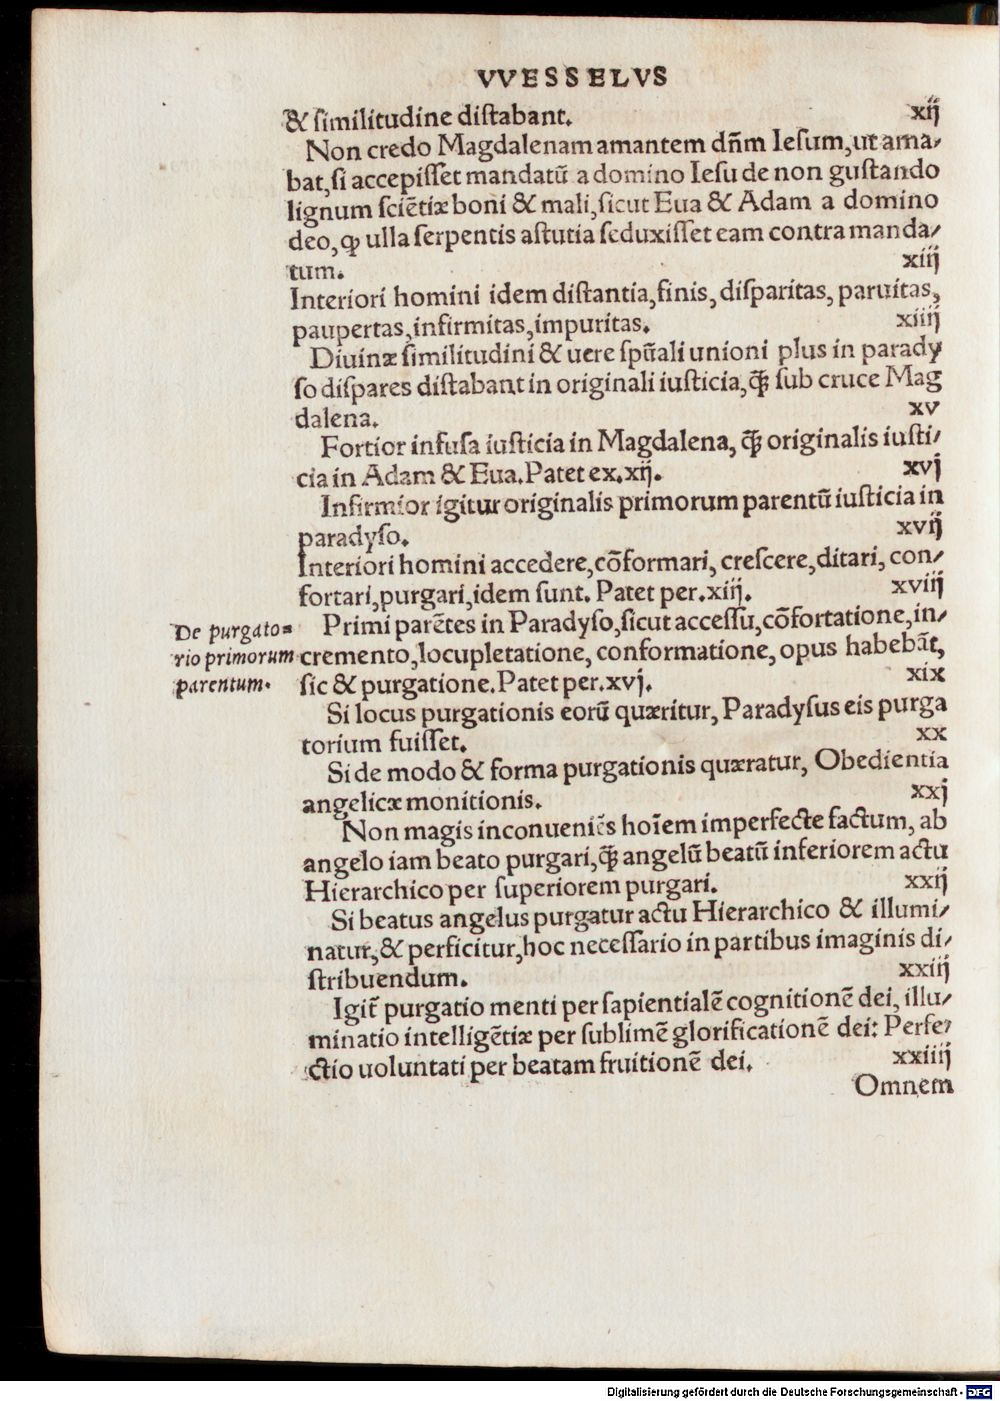 VVESSELVS
& ſimilitudine diſtabant. xij
Non credo Magdalenam amantem dn̄m Ieſum, ut ama⸗
bat, ſi accepiſſet mandatū a domino Ieſu de non guſtando
lignum ſciētiæ boni & mali, ſicut Eua & Adam a domino
deo, ꝙ ulla ſerpentis aſtutia ſeduxiſſet eam contra manda⸗
tum. xiij
Interiori homini idem diſtantia, finis, diſparitas, paruitas,
paupertas, infirmitas, impuritas. xiiij
Diuinæ ſimilitudini & uere ſpūali unioni plus in parady
ſo diſpares diſtabant in originali iuſticia, ꝙ̄ ſub cruce Mag
dalena. xv
Fortior infuſa iuſticia in Magdalena, ꝙ̄ originalis iuſti⸗
cia in Adam & Eua. Patet ex. xij. xvj
Infirmior igitur originalis primorum parentū iuſticia in
paradyſo. xvij
Interiori homini accedere, cōformari, creſcere, ditari, con⸗
fortari, purgari, idem ſunt. Patet per. xiij. xviij
De purgato⸗
rio primorum
parentum.
Primi parētes in Paradyſo, ſicut acceſſu, cōfortatione, in⸗
cremento, locupletatione, conformatione, opus habebāt,
ſic & purgatione. Patet per. xvj. xix
Si locus purgationis eorū quæritur, Paradyſus eis purga
torium fuiſſet. xx
Si de modo & forma purgationis quæratur, Obedientia
angelicæ monitionis. xxj
Non magis inconueniēs hoīem imperfecte factum, ab
angelo iam beato purgari, ꝙ̄ angelū beatū inferiorem actu
Hierarchico per ſuperiorem purgari. xxij
Si beatus angelus purgatur actu Hierarchico & illumi⸗
natur, & perficitur, hoc neceſſario in partibus imaginis di⸗
ſtribuendum. xxiij
Igit̄ purgatio menti per ſapientialē cognitionē dei, illu⸗
minatio intelligētiæ per ſublimē glorificationē dei: Perfe⸗
ctio uoluntati per beatam fruitionē dei. xxiiij
Omnem
Digitalisierung gefördert durch die Deutsche Forschungsgemeinschaft - DFG